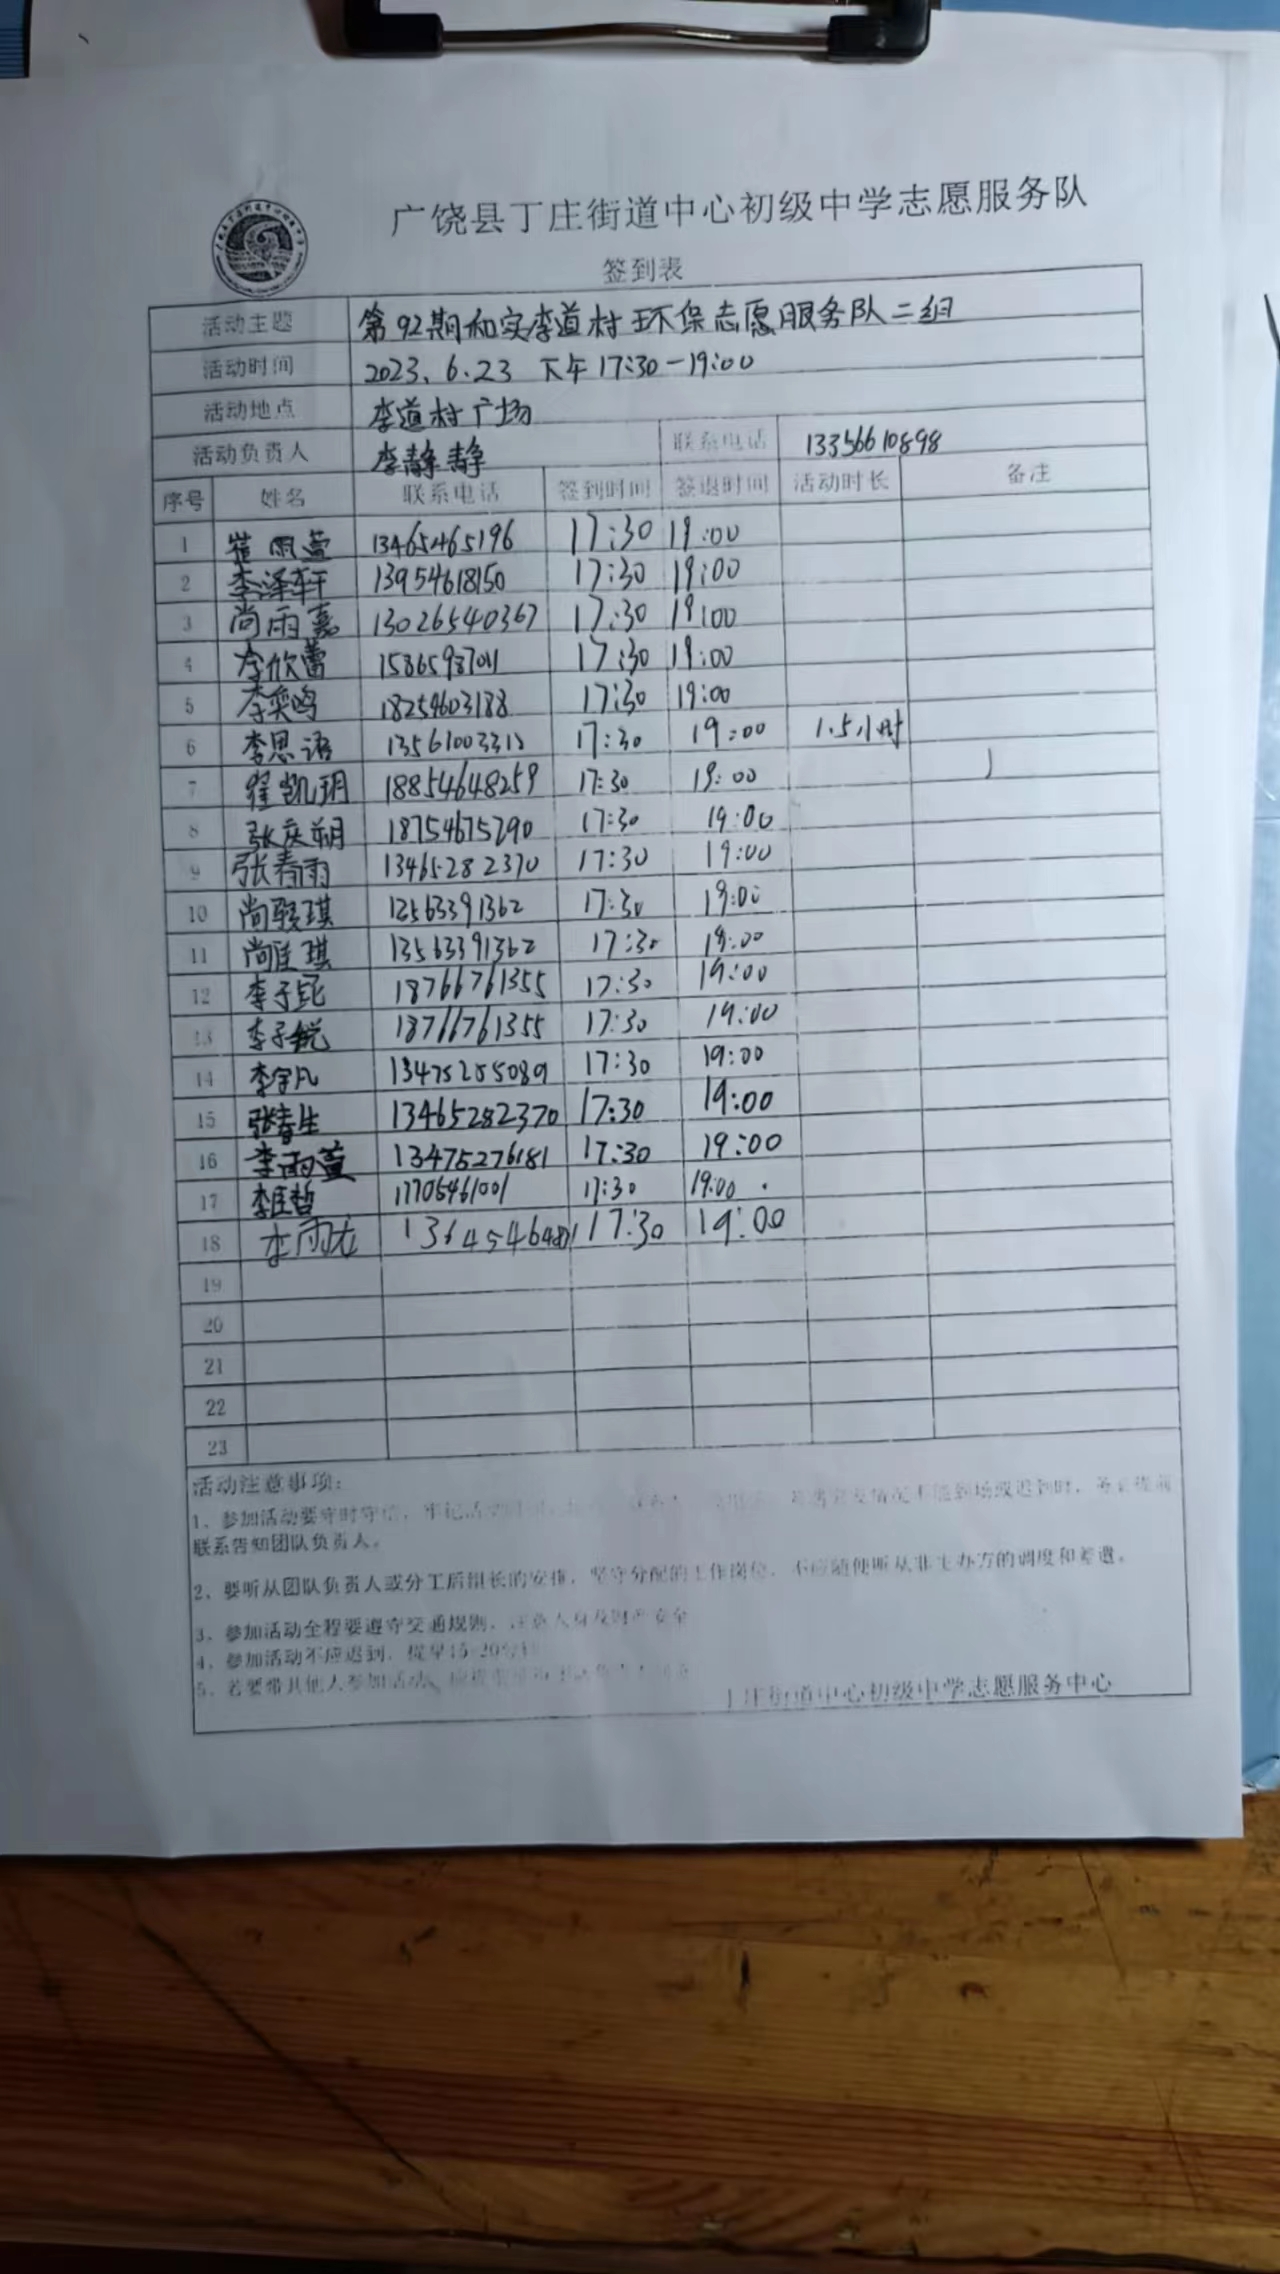 广饶县丁庄街道中心初级中学志愿服务队
签到表
活动主题 第92期和实李道村环保志愿服务队二组
活动时间 2023.6.23 下午17:30-19:00
活动地点 李道村广场
活动负责人 李静静 联系电话 13356610898
序号 姓名 联系电话 签到时间 签退时间 活动时长 备注
1 崔雨萱 13465465196 17:30 19:00
2 李泽轩 13954618150 17:30 19:00
3 尚雨嘉 13026540367 17:30 19:00
4 李欣蕾 15865987011 17:30 19:00
5 李奕鸣 18254603188 17:30 19:00
6 李思语 13561003313 17:30 19:00 1.5小时
7 翟凯玥 18854648259 17:30 19:00
8 张庆朔 18754675290 17:30 19:00
9 张春雨 13465282370 17:30 19:00
10 尚骏琪 13563391362 17:30 19:00
11 尚佳琪 13563391362 17:30 19:00
12 李子 18766761355 17:30 19:00
13 李子锐 18766761355 17:30 19:00
14 李宇凡 13475255089 17:30 19:00
15 张春生 13465282370 17:30 19:00
16 李雨萱 13475276181 17:30 19:00
17 李哲 17705461001 17:30 19:00
18 李雨龙 17:30 19:00
19
20
21
22
23
活动注意事项:
1、参加活动要守时守信,牢记活动 情况不能到场或迟到时,务必提前
联系告知团队负责人。
2、要听从团队负责人或分工后组长的安排,坚守分配的工作岗位,不应随便听从非主办方的调度和差遣。
3、参加活动全程要遵守交通规则,注意人身及财产安全
4、参加活动不应迟到,提早15-20分钟
5、若要带其他人参加活动、
丁庄街道中心初级中学志愿服务中心